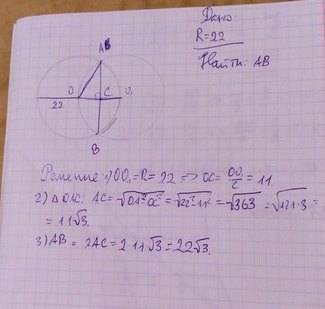 Дано:
R=22
Найти: AB
A B
22 O C O₁
B
Решение: 1) OO₁=R=22 => OC= OO₁/2 = 11.
2) △OAC. AC=√OA²-OC²=√22²-11²=√363=√121·3=
= 11√3.
3) AB = 2AC=2·11√3=22√3.